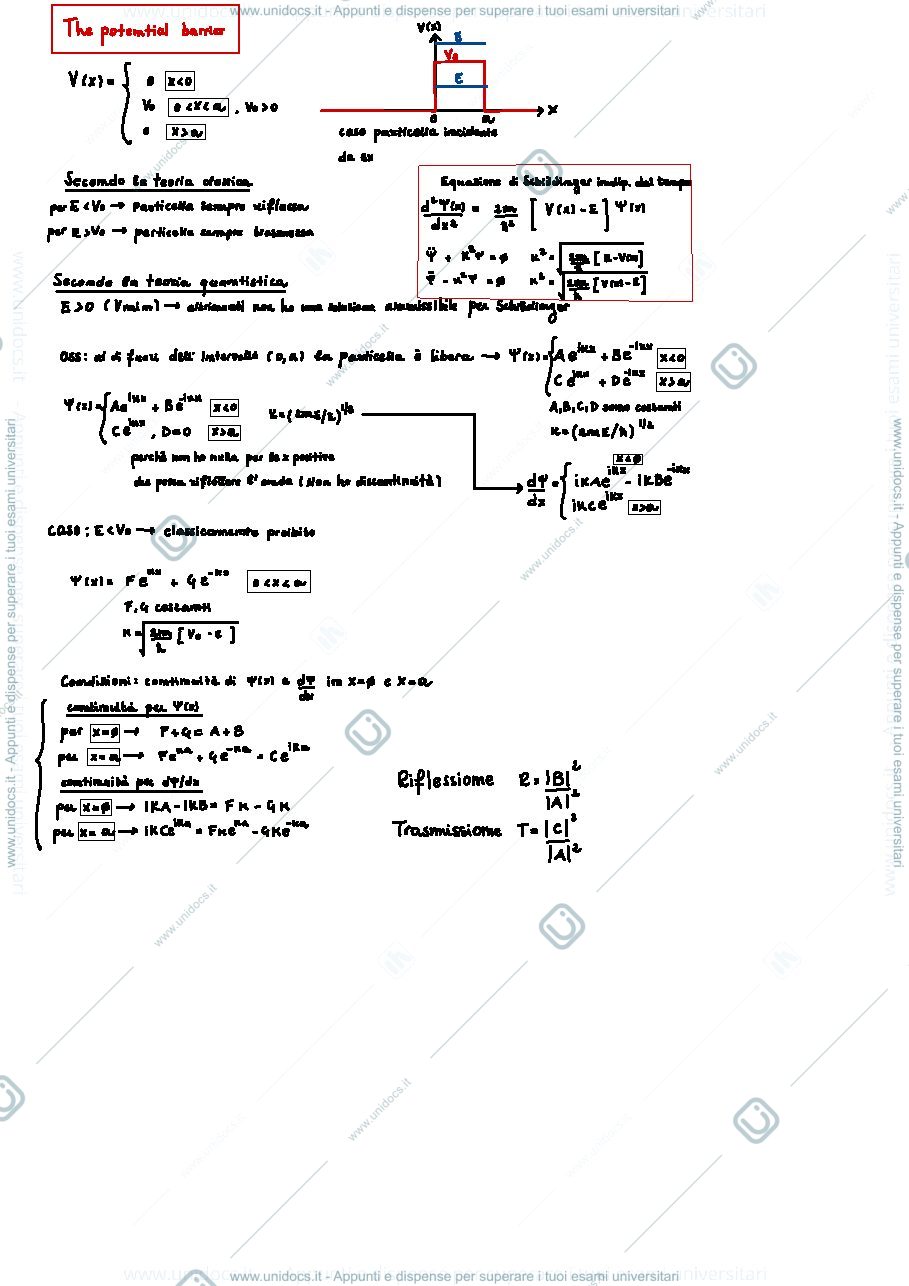 www.unidocs.it - Appunti e dispense per superare i tuoi esami universitari
The potential barrier
V(x) = { 0 x<0
V₀ 0<x<a , V₀>0
0 x>a
V(x)
E
V₀
E
0 a x
caso particella incidente
da sx
Secondo la teoria classica
per E < V₀ → particella sempre riflessa
per E > V₀ → particella sempre trasmessa
Equazione di Schrödinger indip. dal tempo
d²Ψ(x)/dx² = 2m/ħ² [V(x) - E] Ψ(x)
Ψ̈ + K²Ψ = 0 K² = √(2m/ħ [E-V(x)])
Ψ̈ - K²Ψ = 0 K² = √(2m/ħ [V(x)-E])
Secondo la teoria quantistica
E>0 (Vmin) → altrimenti non ho una soluzione ammissibile per Schrödinger
OSS: al di fuori dell' intervallo (0,a) la particella è libera → Ψ(x) = { Ae^{ikx} + Be^{-ikx} x<0
Ce^{ikx} + De^{-ikx} x>a
A,B,C,D sono costanti
K = (2mE/ħ)^{1/2}
Ψ(x) = { Ae^{ikx} + Be^{-ikx} x<0 K = (2mE/ħ)^{1/2}
Ce^{ikx} , D=0 x>a
perché non ho nulla per le x positive
che possa riflettere l' onda (Non ho discontinuità)
dΨ/dx = { iKAe^{ikx} - iKBe^{-ikx} x<0
iKCe^{ikx} x>a
CASO: E<V₀ → classicamente proibito
Ψ(x) = Fe^{kx} + Ge^{-kx} 0<x<a
F,G costanti
K = √(2m/ħ [V₀ - E])
Condizioni: continuità di Ψ(x) e dΨ/dx in x=0 e x=a
continuità per Ψ(x)
per x=0 → F+G = A+B
per x=a → Fe^{ka} + Ge^{-ka} = Ce^{ika}
continuità per dΨ/dx
per x=0 → iKA - iKB = FK - GK
per x=a → iKCe^{ika} = FKe^{ka} - GKe^{-ka}
Riflessione R = |B|²/|A|²
Trasmissione T = |C|²/|A|²
www.unidocs.it - Appunti e dispense per superare i tuoi esami universitari